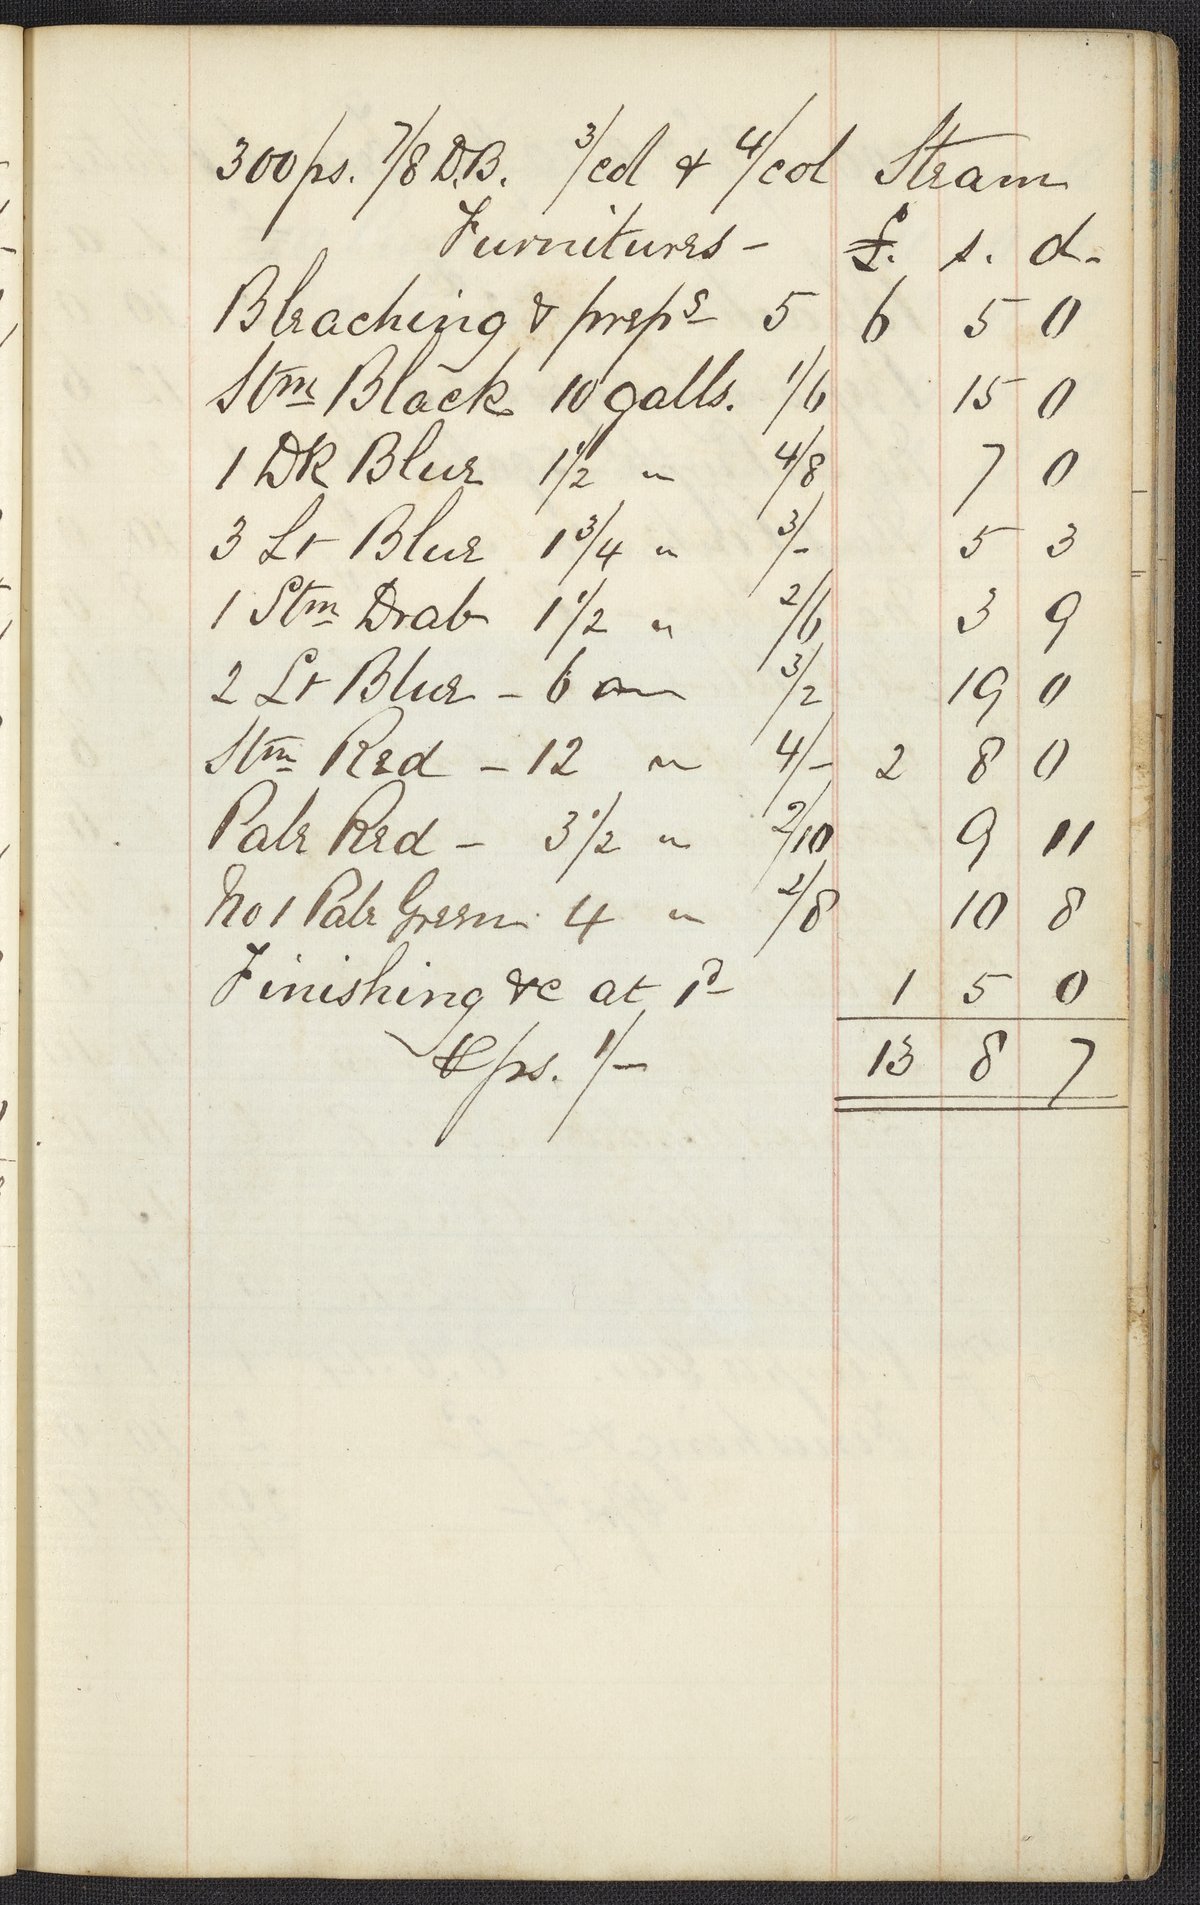 300 ps. 7/8 D.B. 3/col & 4/col Steam
Furnitures — £. s. d.
Bleaching & preps 5 6 5 0
Stm Black 10 galls. 1/6 15 0
1 Dk Blue 1 1/2 " 4/8 7 0
3 Lt Blue 1 3/4 " 3/- 5 3
1 Stm Drab 1 1/2 " 2/6 3 9
2 Lt Blue - 6 " 3/2 19 0
Stm Red - 12 " 4/- 2 8 0
Pale Red - 3 1/2 " 2/10 9 11
No 1 Pale Green 4 " 2/8 10 8
Finishing &c at 1d 1 5 0
ps. 1/- 13 8 7